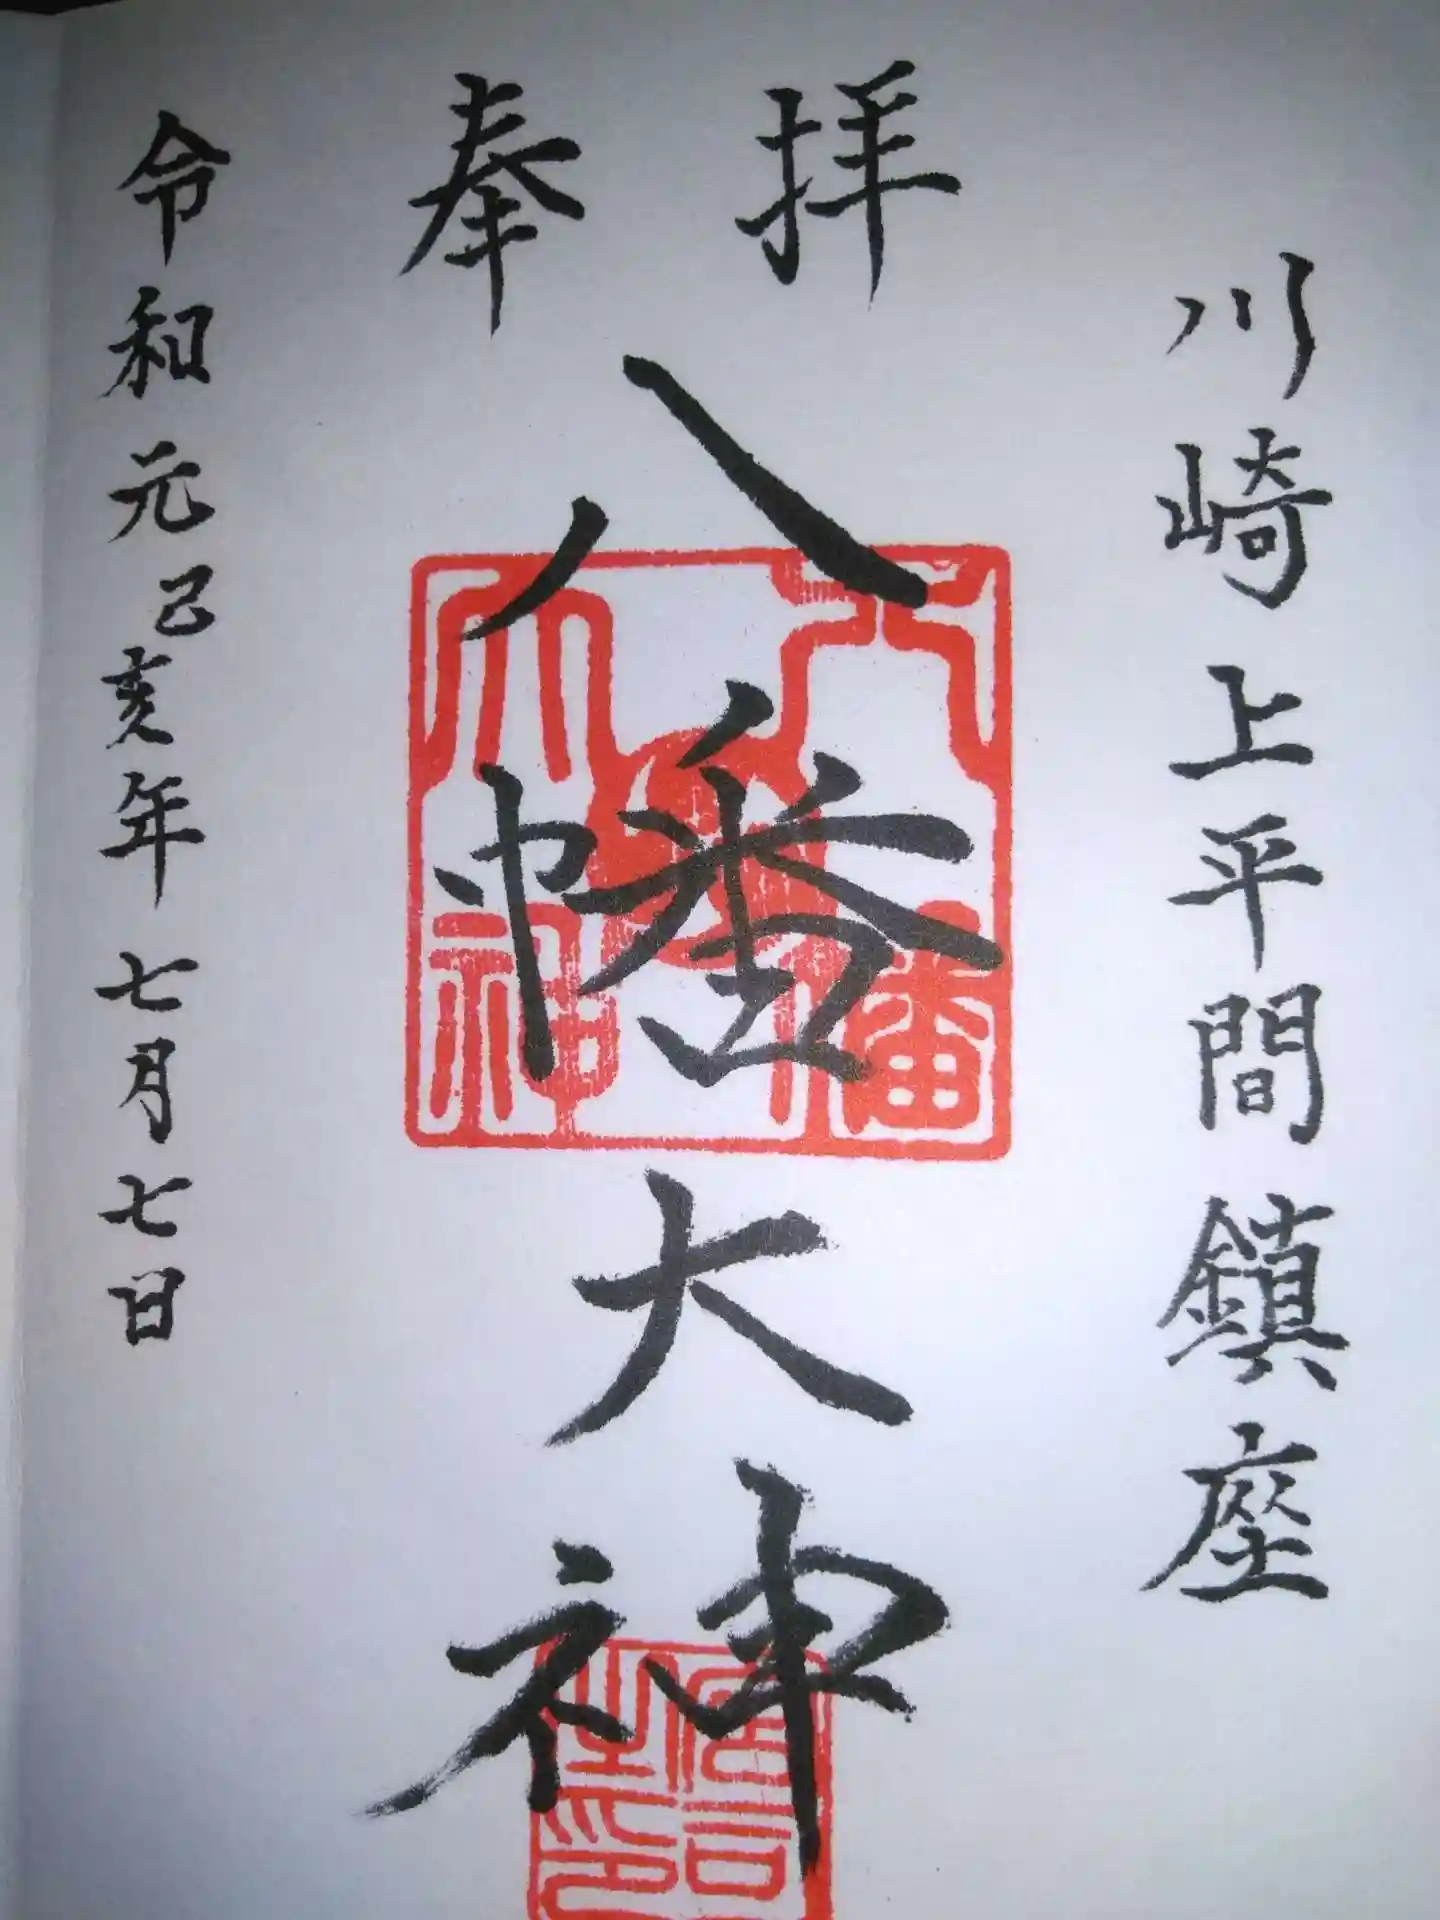 川崎上平間鎮座
奉拝
八幡大神
令和元己亥年七月七日
八幡
大神
宮司之印